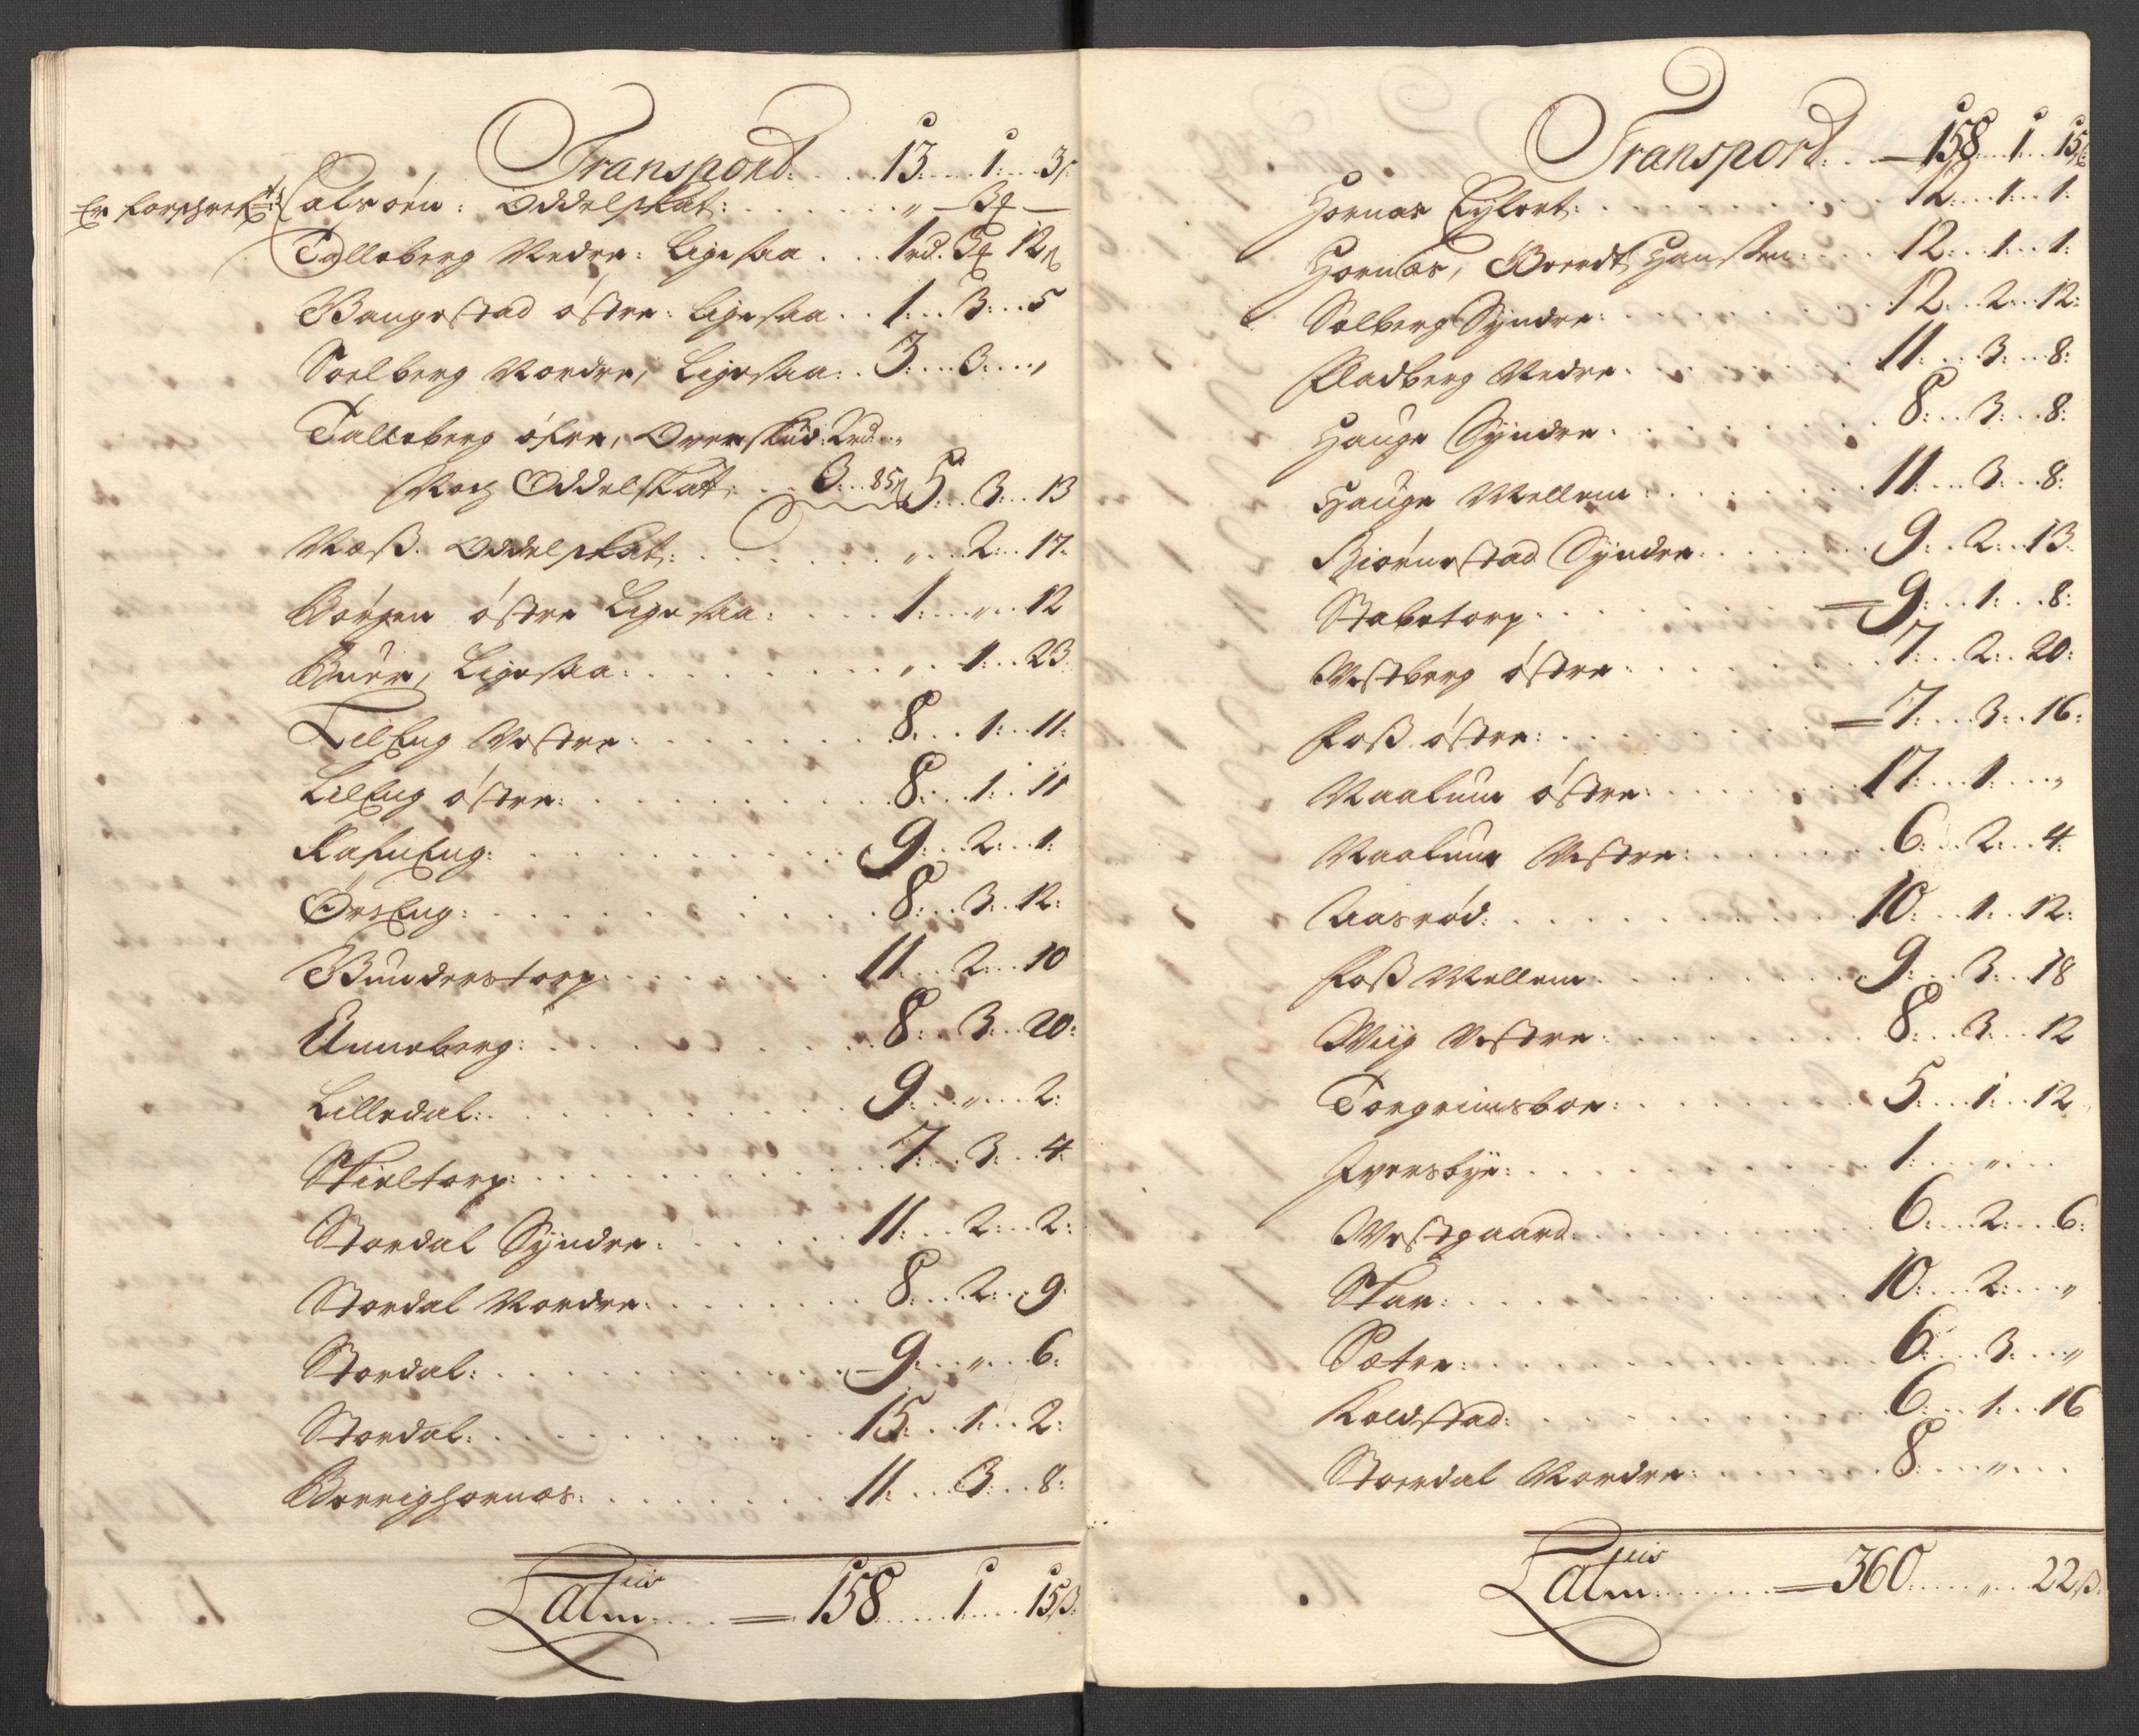 Transpord: 13. 1. 3
Calsøen: Oddelskat: „ 3
Talleberg Nedre: Ligesaa. 1rd. 3 12
Baugestad østre: Ligesaa. 1. 3. 5
Soelberg Nordre, Ligesaa: 3. 3. „
Talleberg øfre, Overskud: 2rd „
Noch Oddelskat: 3. 5. 3. 13
Næss. Oddelskat: „ 2. 17.
Borgen østre Ligesaa: 1. „ 12
Buer, Ligesaa: „ 1. 23.
LilEng Vestre: 8. 1. 11.
LilEng østre: 8. 1. 11
RafnEng: 9. 2. 1.
ØrsEng: 8. 3. 12.
Bunderstorp: 11. 2. 10
Unneberg: 8. 3. 20:
Lilledal: 9. „ 2.
Skieltorp: 7. 3. 4.
Stordal Syndre: 11. 2. 2:
Stordal Nordre: 8. 2. 9.
Stordal: 9. „ 6.
Stordal: 15. 1. 2:
Berrighornæs: 11. 3. 8:
Latus 158 1 15 β.
Transport: 158 1 15 β
Hornæs Eylert: 12. 1. 1.
Hornæs, Brendt Hanssen: 12. 1. 1.
Solberg Syndre: 12. 2. 12:
Fladberg Nedre: 11. 3. 8:
Hauge Syndre: 8. 3. 8:
Hauge Mellem: 11. 3. 8:
Biørnestad Syndre: 9. 2. 13.
Stabetorp: 9. 1. 8:
Vestberg østre: 7. 2. 20:
Foss østre: 7. 3. 16:
Naalum østre: 17. 1. „
Naalum Vestre: 6. 2. 4.
Aasrød: 10. 1. 12:
Foss Mellem: 9. 3. 18
Wiig Vestre: 8. 3. 12
Torgrimsboe: 5. 1. 12
Iversbye: 1. „
Westgaard: 6. 2. 6:
Skar: 10. 2. „
Sætre: 6. 3. „
Koldstad: 6. 1. 16
Stordal Nordre: 8. „
Latus 360 „ 22 β.